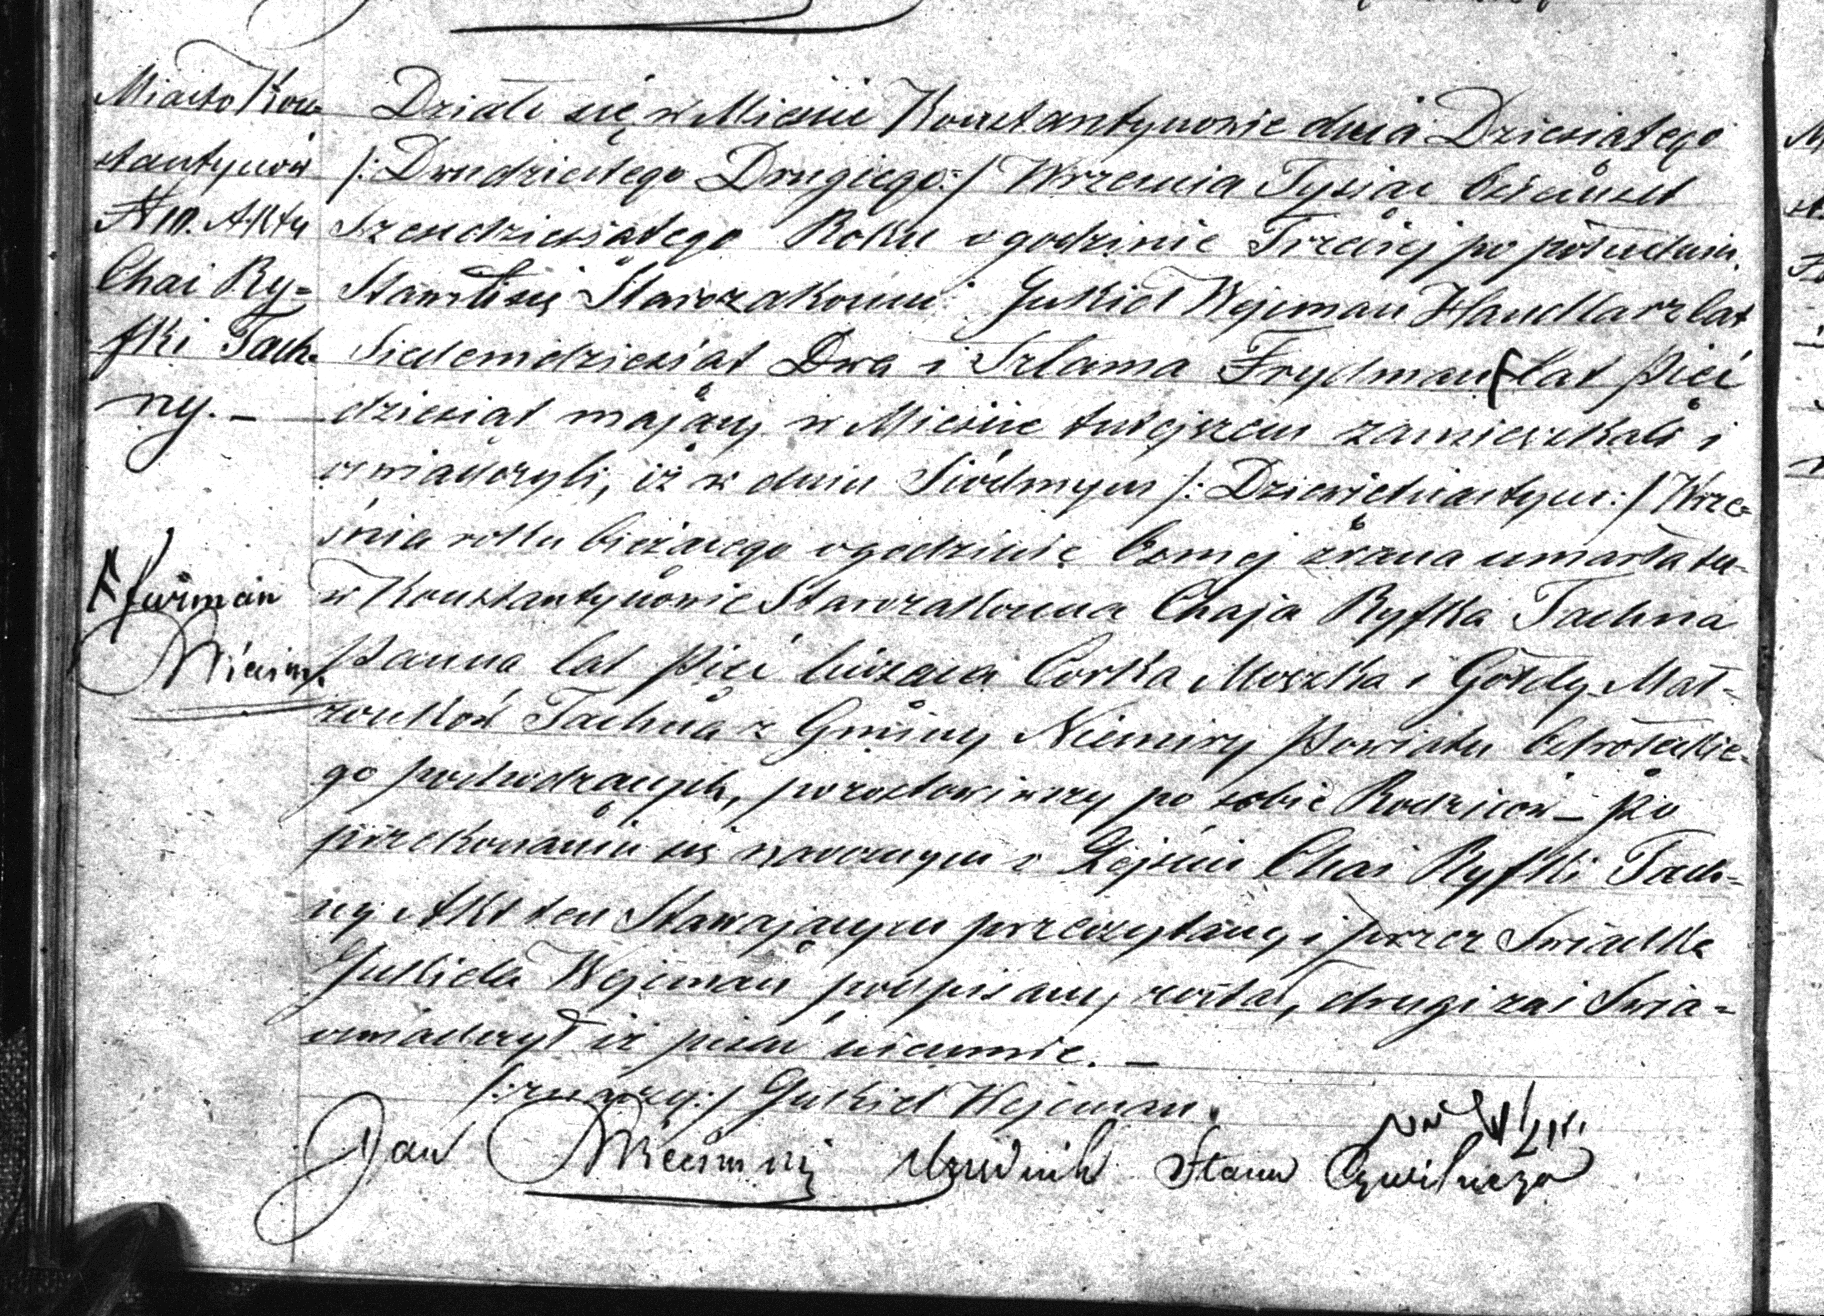 Miasto Kon=
stantynów
Akty
Chai Ry=
fki Tach=
ny. –
Działo się w Mieście Konstantynowie dnia Dziesiątego
/: Dwudziestego Drugiego :/ Września Tysiąc Ośmset
Sześćdziesiątego Roku o godzinie Trzeciej po południu
Stawili się Starozakonni Judkiel Wejcman Handlarz lat
Siedemdziesiąt Dwa i Szlama Frydman lat Pięć
dziesiąt mający w Mieście tutejszem zamieszkali i
oświadczyli, iż w dniu Siódmym /: Dziewiętnastym :/ Wrze=
śnia roku bieżącego o godzinie Osmej zrana umarła tu
w Konstantynowie Starozakonna Chaja Ryfka Tachna
Panna lat Pięć licząca Córka Moszka i Gołdy Mał=
żonków Tachna z Gminy Niemiry Powiatu
go pochodzących, pozostawiwszy po sobie Rodziców – Po
przekonaniu się naocznym o Zejściu Chai Ryfki Tach=
ny Akt ten Stawającym przeczytany i przez Swiadka
Judkiela Wejcman podpisany został, drugi zaś Swia=
oświadczył iż pisać nieumie. –
furman
/: :/ Judkiel Wejcman
Jan Urzędnik Stanu Cywilnego